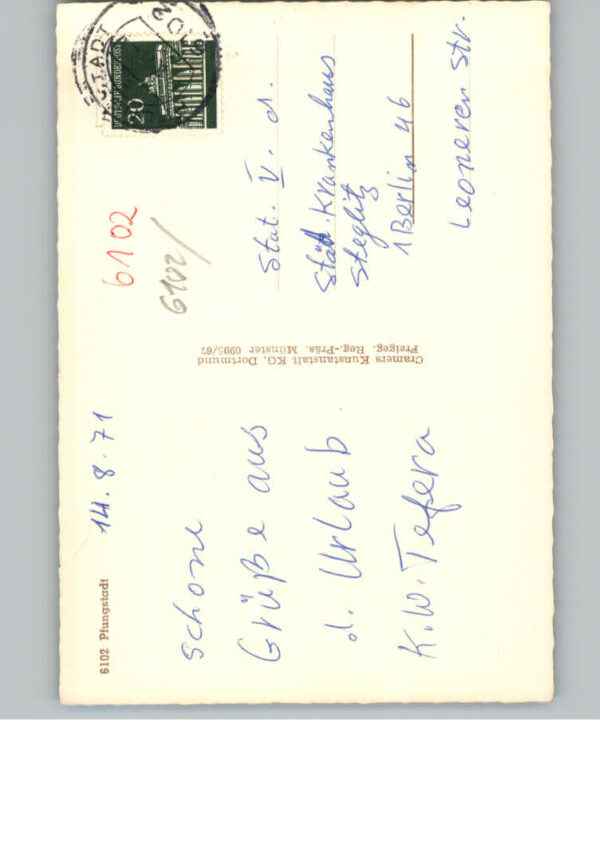 6102 Pfungstadt
14.8.71
Schöne
Grüße aus
d. Urlaub
K.W. Tefera
Cramers Kunstanstalt KG, Dortmund
Freigeg. Reg.-Präs. Münster 0995/67
6102
6102/
DEUTSCHE BUNDESPOST
20
Stat. V. d.
Städt. Krankenhaus
Steglitz
1 Berlin 46
Leonoren Str.